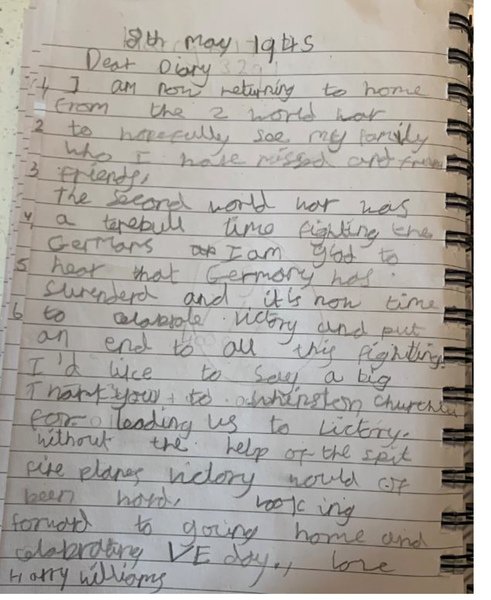 8th may 1945
Dear Diary
1 I am now returning to home
from the 2 world war
2 to hopefully see my family
who I have missed and
3 friends,
the second world war was
4 a terebull time fighting the
Germans I am glad to
5 hear that Germony has
surenderd and it's now time
6 to celabrate victory and put
an end to all this fighting
I'd lice to say a big
Thankyou to whinston churchill
for leading us to victory.
without the help of the spit
fire planes victory would of
been hard. looking
forward to going home and
celabrating VE day., love
Harry Williams